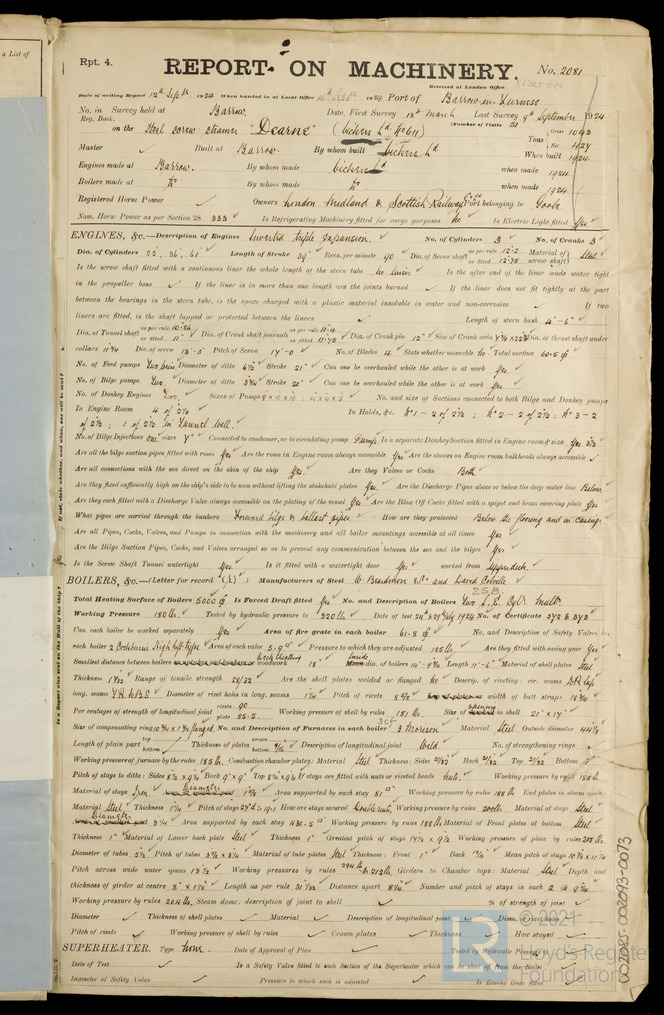 a List of
Rpt. 4.
REPORT ON MACHINERY.
No. 2081
Received at London Office
Date of writing Report 12th Septr. 1924 When handed in at Local Office 1924 Port of Barrow in Furness
No. in Survey held at Barrow. Date, First Survey 13th March. Last Survey 9th September 1924
Reg. Book. (Number of Visits 51
on the Steel screw steamer "Dearne" (Vickers Ld. No 611) Tons Gross 1043 Net 427
Master ✓ Built at Barrow. By whom built Vickers Ld When built 1924.
Engines made at Barrow. By whom made Vickers Ld when made 1924.
Boilers made at Do By whom made Do when made 1924
Registered Horse Power ✓ Owners London Midland & Scottish Railway belonging to Goole
Nom. Horse Power as per Section 28 333 Is Refrigerating Machinery fitted for cargo purposes No Is Electric Light fitted Yes
ENGINES, &c.—Description of Engines Inverted triple expansion. No. of Cylinders 3 No. of Cranks 3
Dia. of Cylinders 22. 36. 61 Length of Stroke 39" Revs. per minute 90 Dia. of Screw shaft as per rule 12.3 as fitted 12.75 Material of screw shaft Steel
Is the screw shaft fitted with a continuous liner the whole length of the stern tube No liners Is the after end of the liner made water tight
in the propeller boss ✓ If the liner is in more than one length are the joints burned ✓ If the liner does not fit tightly at the part
between the bearings in the stern tube, is the space charged with a plastic material insoluble in water and non-corrosive ✓ If two
liners are fitted, is the shaft lapped or protected between the liners ✓ Length of stern bush 4'-6"
Dia. of Tunnel shaft as per rule 10.86 as fitted 11" Dia. of Crank shaft journals as per rule 11.4 as fitted 11.75 Dia. of Crank pin 12" Size of Crank webs Dia. of thrust shaft under
collars 11 3/4 Dia. of screw 13'-0" Pitch of Screw 17'-0" No. of Blades 4 State whether moveable No Total surface 60.5
No. of Feed pumps Two Diameter of ditto 6 1/2 Stroke 21" Can one be overhauled while the other is at work Yes.
No. of Bilge pumps Two. Diameter of ditto 3 3/4 Stroke 20" Can one be overhauled while the other is at work Yes
No. of Donkey Engines Two. Sizes of Pumps No. and size of Suctions connected to both Bilge and Donkey pumps
In Engine Room 4 of 2 1/2 In Holds, &c. No 1 - 2 of 2 1/2; No 2 - 2 of 2 1/2; No 3 - 2
of 2 1/2; 1 of 2 1/2 in Tunnel Well.
No. of Bilge Injections one sizes 7" Connected to condenser, or to circulating pump Pump Is a separate Donkey Suction fitted in Engine room & size Yes 3 1/2
Are all the bilge suction pipes fitted with roses Yes Are the roses in Engine room always accessible Yes Are the sluices on Engine room bulkheads always accessible ✓
Are all connections with the sea direct on the skin of the ship Yes. Are they Valves or Cocks Both
Are they fixed sufficiently high on the ship's side to be seen without lifting the stokehold plates Yes. Are the Discharge Pipes above or below the deep water line Below.
Are they each fitted with a Discharge Valve always accessible on the plating of the vessel Yes Are the Blow Off Cocks fitted with a spigot and brass covering plate Yes
What pipes are carried through the bunkers Forward bilge & ballast pipes How are they protected Below the flooring and in casings
Are all Pipes, Cocks, Valves, and Pumps in connection with the machinery and all boiler mountings accessible at all times Yes
Are the Bilge Suction Pipes, Cocks, and Valves arranged so as to prevent any communication between the sea and the bilges Yes.
Is the Screw Shaft Tunnel watertight Yes Is it fitted with a watertight door Yes worked from upper deck.
BOILERS, &c.—(Letter for record (S) Manufacturers of Steel W. Beardmore & Co and David Colville
2 S.B.
Total Heating Surface of Boilers 5000 Is Forced Draft fitted Yes No. and Description of Boilers Two S.E. Cylr. Mult.
Working Pressure 180 lbs. Tested by hydraulic pressure to 320 lbs Date of test 1924 No. of Certificate 372 & 373
Can each boiler be worked separately Yes Area of fire grate in each boiler 61.8 No. and Description of Safety Valves to
each boiler 2 Cockburns High lift type Area of each valve 5.9 Pressure to which they are adjusted 185 lbs. Are they fitted with easing gear Yes
Smallest distance between boilers woodwork 18" Inside dia. of boilers 14'-9 3/4 Length 11'-6" Material of shell plates Steel
Thickness 1 7/32 Range of tensile strength 28/32 Are the shell plates welded or flanged No Descrip. of riveting: cir. seams D.R. Lap
long. seams T.R. D.B.S Diameter of rivet holes in long. seams 1 1/4 Pitch of rivets 8 5/8 width of butt straps 18 3/4
Per centages of strength of longitudinal joint rivets 90 plate 85.5 Working pressure of shell by rules 181 lbs. Size of opening in shell 21" x 17"
Size of compensating ring flanged. No. and Description of Furnaces in each boiler 3 Morison Material Steel Outside diameter
Length of plain part top bottom Thickness of plates crown bottom Description of longitudinal joint Weld. No. of strengthening rings
Working pressure of furnace by the rules 185 lb. Combustion chamber plates: Material Steel Thickness: Sides 21/32 Back 21/32 Top 21/32 Bottom
Pitch of stays to ditto: Sides Back 9" x 9" Top If stays are fitted with nuts or riveted heads Nuts. Working pressure by rules
Material of stays Iron. Diameter Area supported by each stay 81 Working pressure by rules 185 lb End plates in steam space:
Material Steel Thickness Pitch of stays How are stays secured Double nuts. Working pressure by rules 200 lbs Material of stays Steel
Diameter Area supported by each stay 430.5 Working pressure by rules 188 lb Material of Front plates at bottom Steel
Thickness 1" Material of Lower back plate Steel Thickness 1" Greatest pitch of stays Working pressure of plate by rules
Diameter of tubes 2 1/2 Pitch of tubes Material of tube plates Steel Thickness: Front 1" Back Mean pitch of stays
Pitch across wide water spaces 13 1/2 Working pressures by rules 294 lb & 212 lb. Girders to Chamber tops: Material Steel Depth and
thickness of girder at centre Length as per rule 31 1/32 Distance apart Number and pitch of stays in each 2 @
Working pressure by rules 204 lb. Steam dome: description of joint to shell % of strength of joint
Diameter Thickness of shell plates Material Description of longitudinal joint Diam. of rivet holes
Pitch of rivets Working pressure of shell by rules Crown plates Thickness How stayed
SUPERHEATER. Type None. Date of Approval of Plan Tested by Hydraulic Pressure to
Date of Test Is a Safety Valve fitted to each Section of the Superheater which can be shut off from the Boiler
Diameter of Safety Valve Pressure to which each is adjusted Is Easing Gear fitted
© 2021
Lloyd's Register
Foundation
002085-002093-0073